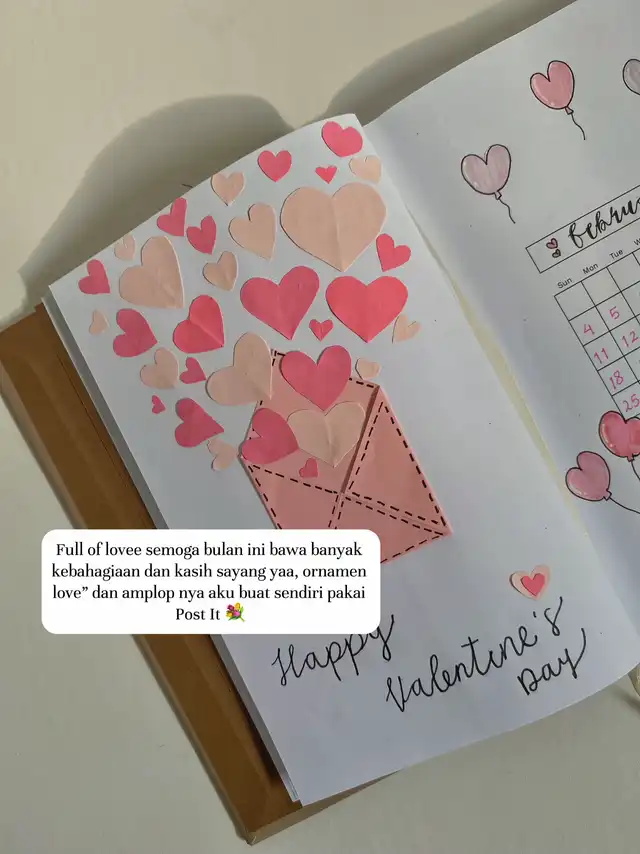 Februa
Sun Mon Tue W
4 5
11 12
18
25
Full of lovee semoga bulan ini bawa banyak
kebahagiaan dan kasih sayang yaa, ornamen
love” dan amplop nya aku buat sendiri pakai
Post It 💐
Happy
Valentine's
Day